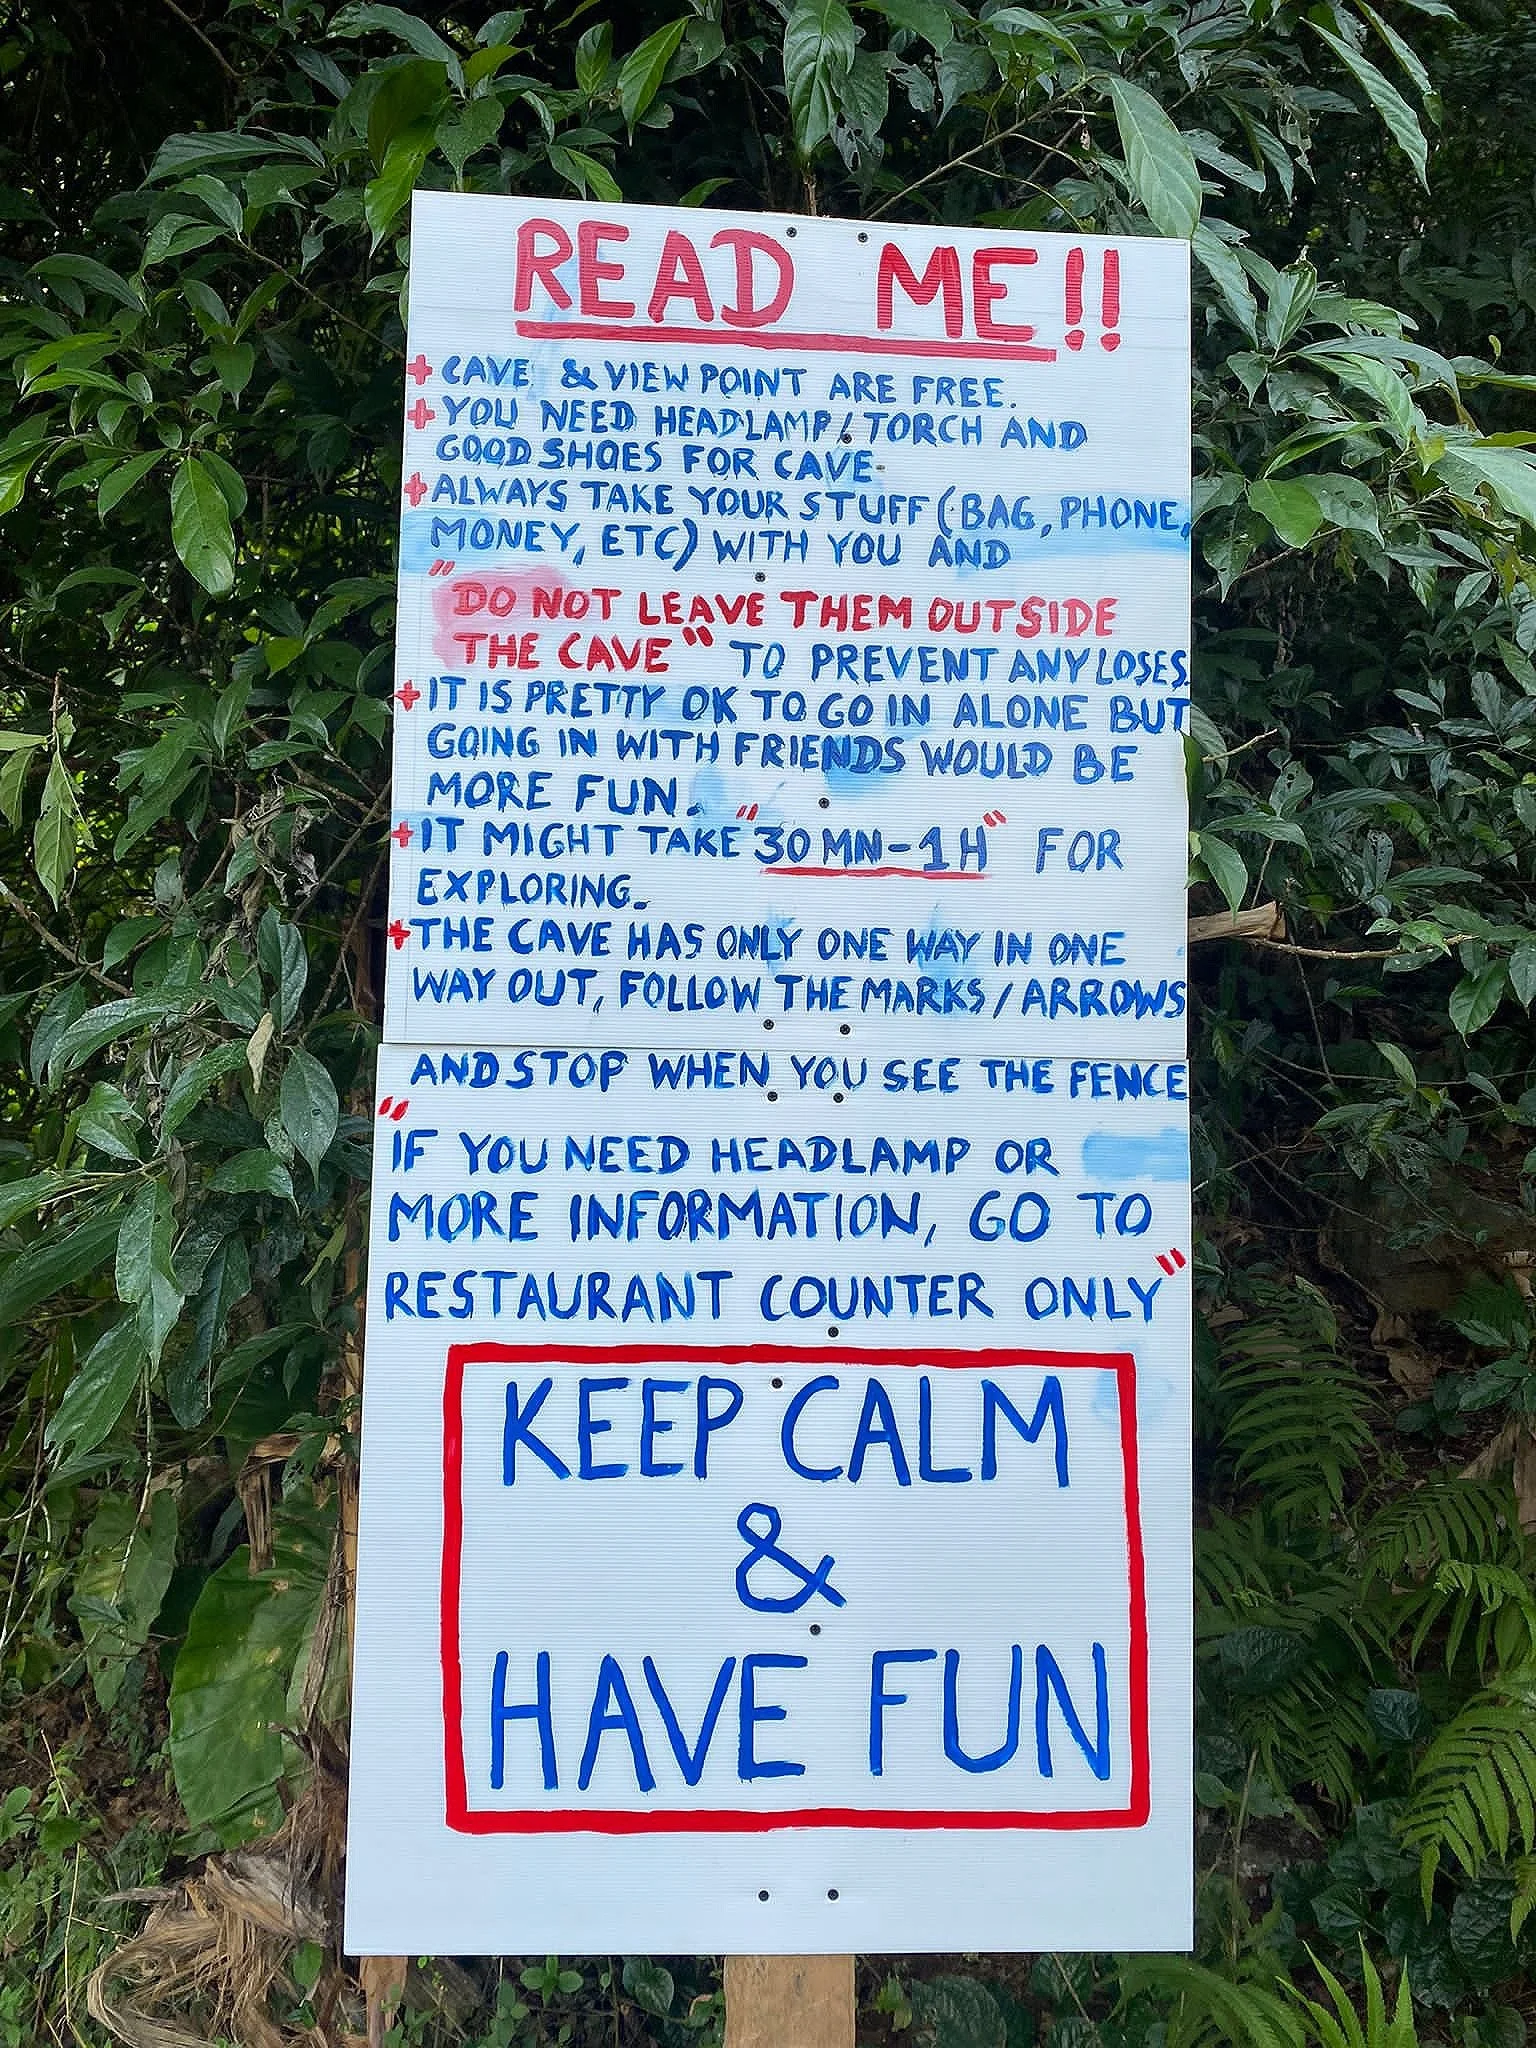 READ ME!!
+ CAVE & VIEW POINT ARE FREE.
+ YOU NEED HEADLAMP/TORCH AND
GOOD SHOES FOR CAVE.
+ ALWAYS TAKE YOUR STUFF (BAG, PHONE,
MONEY, ETC) WITH YOU AND
"DO NOT LEAVE THEM OUTSIDE
THE CAVE" TO PREVENT ANY LOSES.
+ IT IS PRETTY OK TO GO IN ALONE BUT
GOING IN WITH FRIENDS WOULD BE
MORE FUN.
+ IT MIGHT TAKE "30 MN-1H" FOR
EXPLORING.
+ THE CAVE HAS ONLY ONE WAY IN ONE
WAY OUT, FOLLOW THE MARKS/ARROWS
AND STOP WHEN YOU SEE THE FENCE
"IF YOU NEED HEADLAMP OR
MORE INFORMATION, GO TO
RESTAURANT COUNTER ONLY"
KEEP CALM
&
HAVE FUN